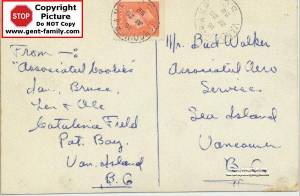 STOP
Copyright
Picture
Do NOT COPY
www.gent-family.com
From —:
"Associated Boobies"
Ian, Bruce,
Len & Ole
Catalina Field
Pat. Bay.
Van. Island
B.C
Mr. Bud Walker
Associated Aero
Services.
Sea Island
Vancouver
B.C.